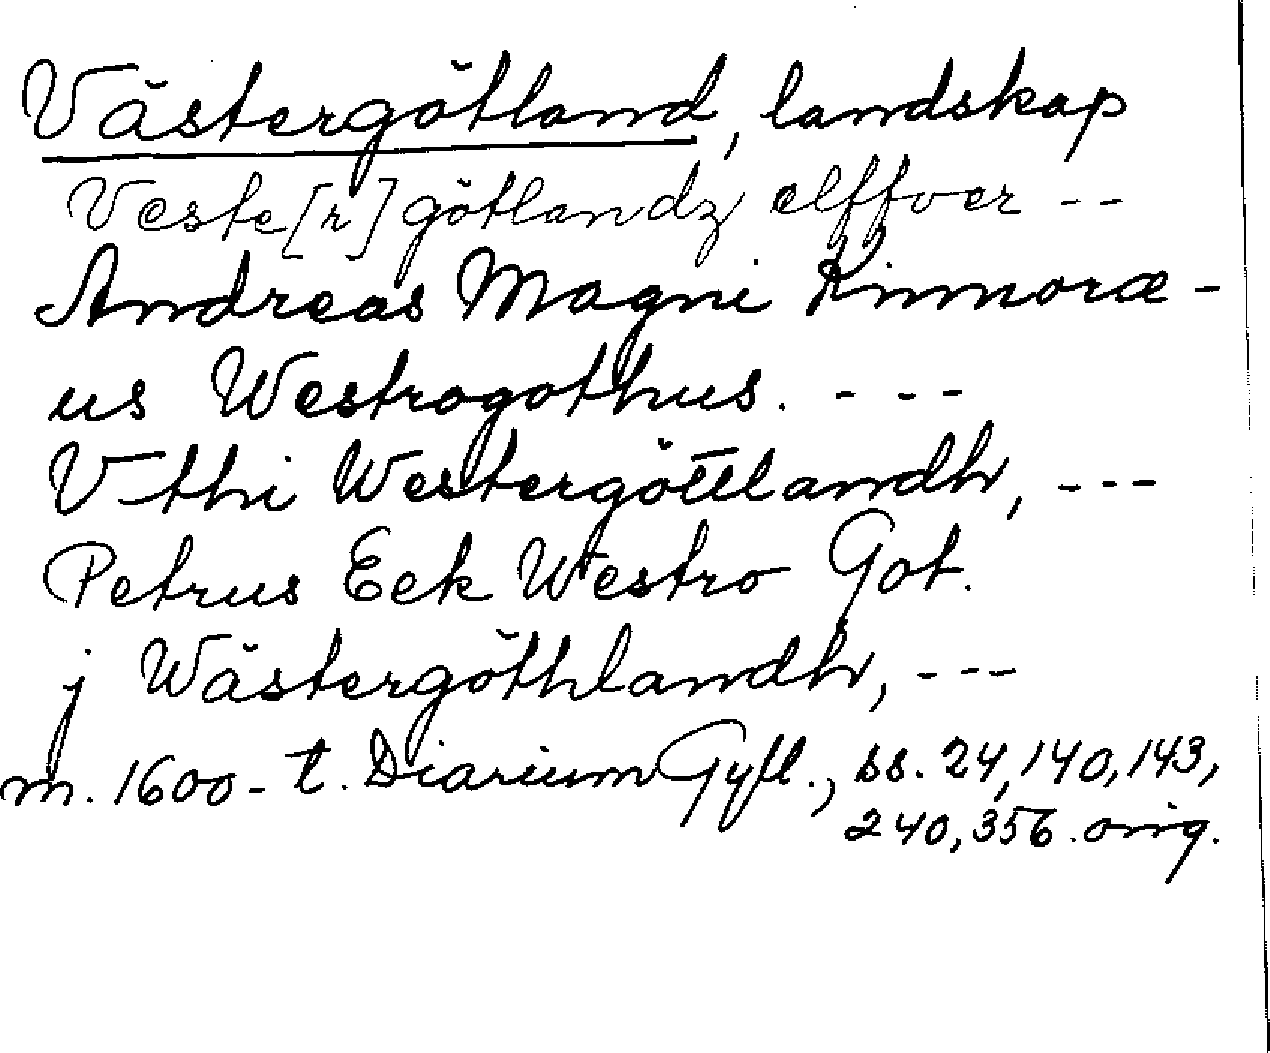 Västergötland, landskap
Veste[r]götlandz elffver --
Andreas Magni Rinnoræ-
us Westrogothus. ---
Vthi Westergöttlandh, ---
Petrus Eek Westro Got.
j Wästergöthlandh, ---
m. 1600-t. Diarium Gyll., ss. 24, 140, 143,
240, 356. orig.